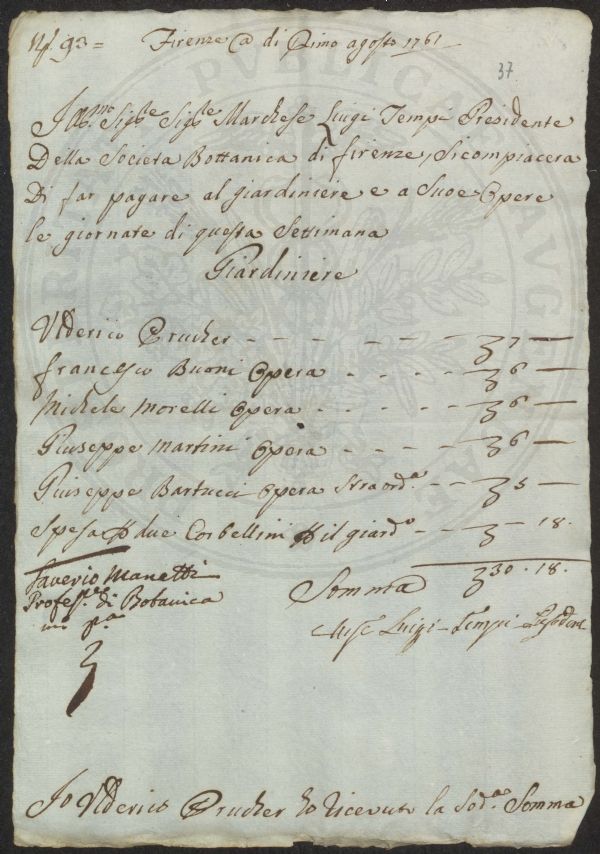 N.º 93 = Firenze @ di Primo agosto 1761
37
Ill.mo Sig.re Sig.re Marchese Luigi Tempi Presidente
Della Societa Bottanica di firenze, Si compiacera
Di far pagare al giardiniere e a Sue Opere
le giornate di questa Settimana
Giardiniere
Vlderico Prucher - - - - - - 7 —
francesco Buoni Opera - - - - 6 —
Michele Morelli Opera - - - - 6 —
Giuseppe Martini Opera - - - 6 —
Giuseppe Bartucci Opera Straord.a - - 5 —
Spesa p due Corbellini p il giard.o - - — 18.
Saverio Manetti
Profess.e di Botanica
m. p.a
Somma 30 . 18 .
Luigi Tempi
Io Vlderico Prucher ho Ricevuto la Sod.a Somma